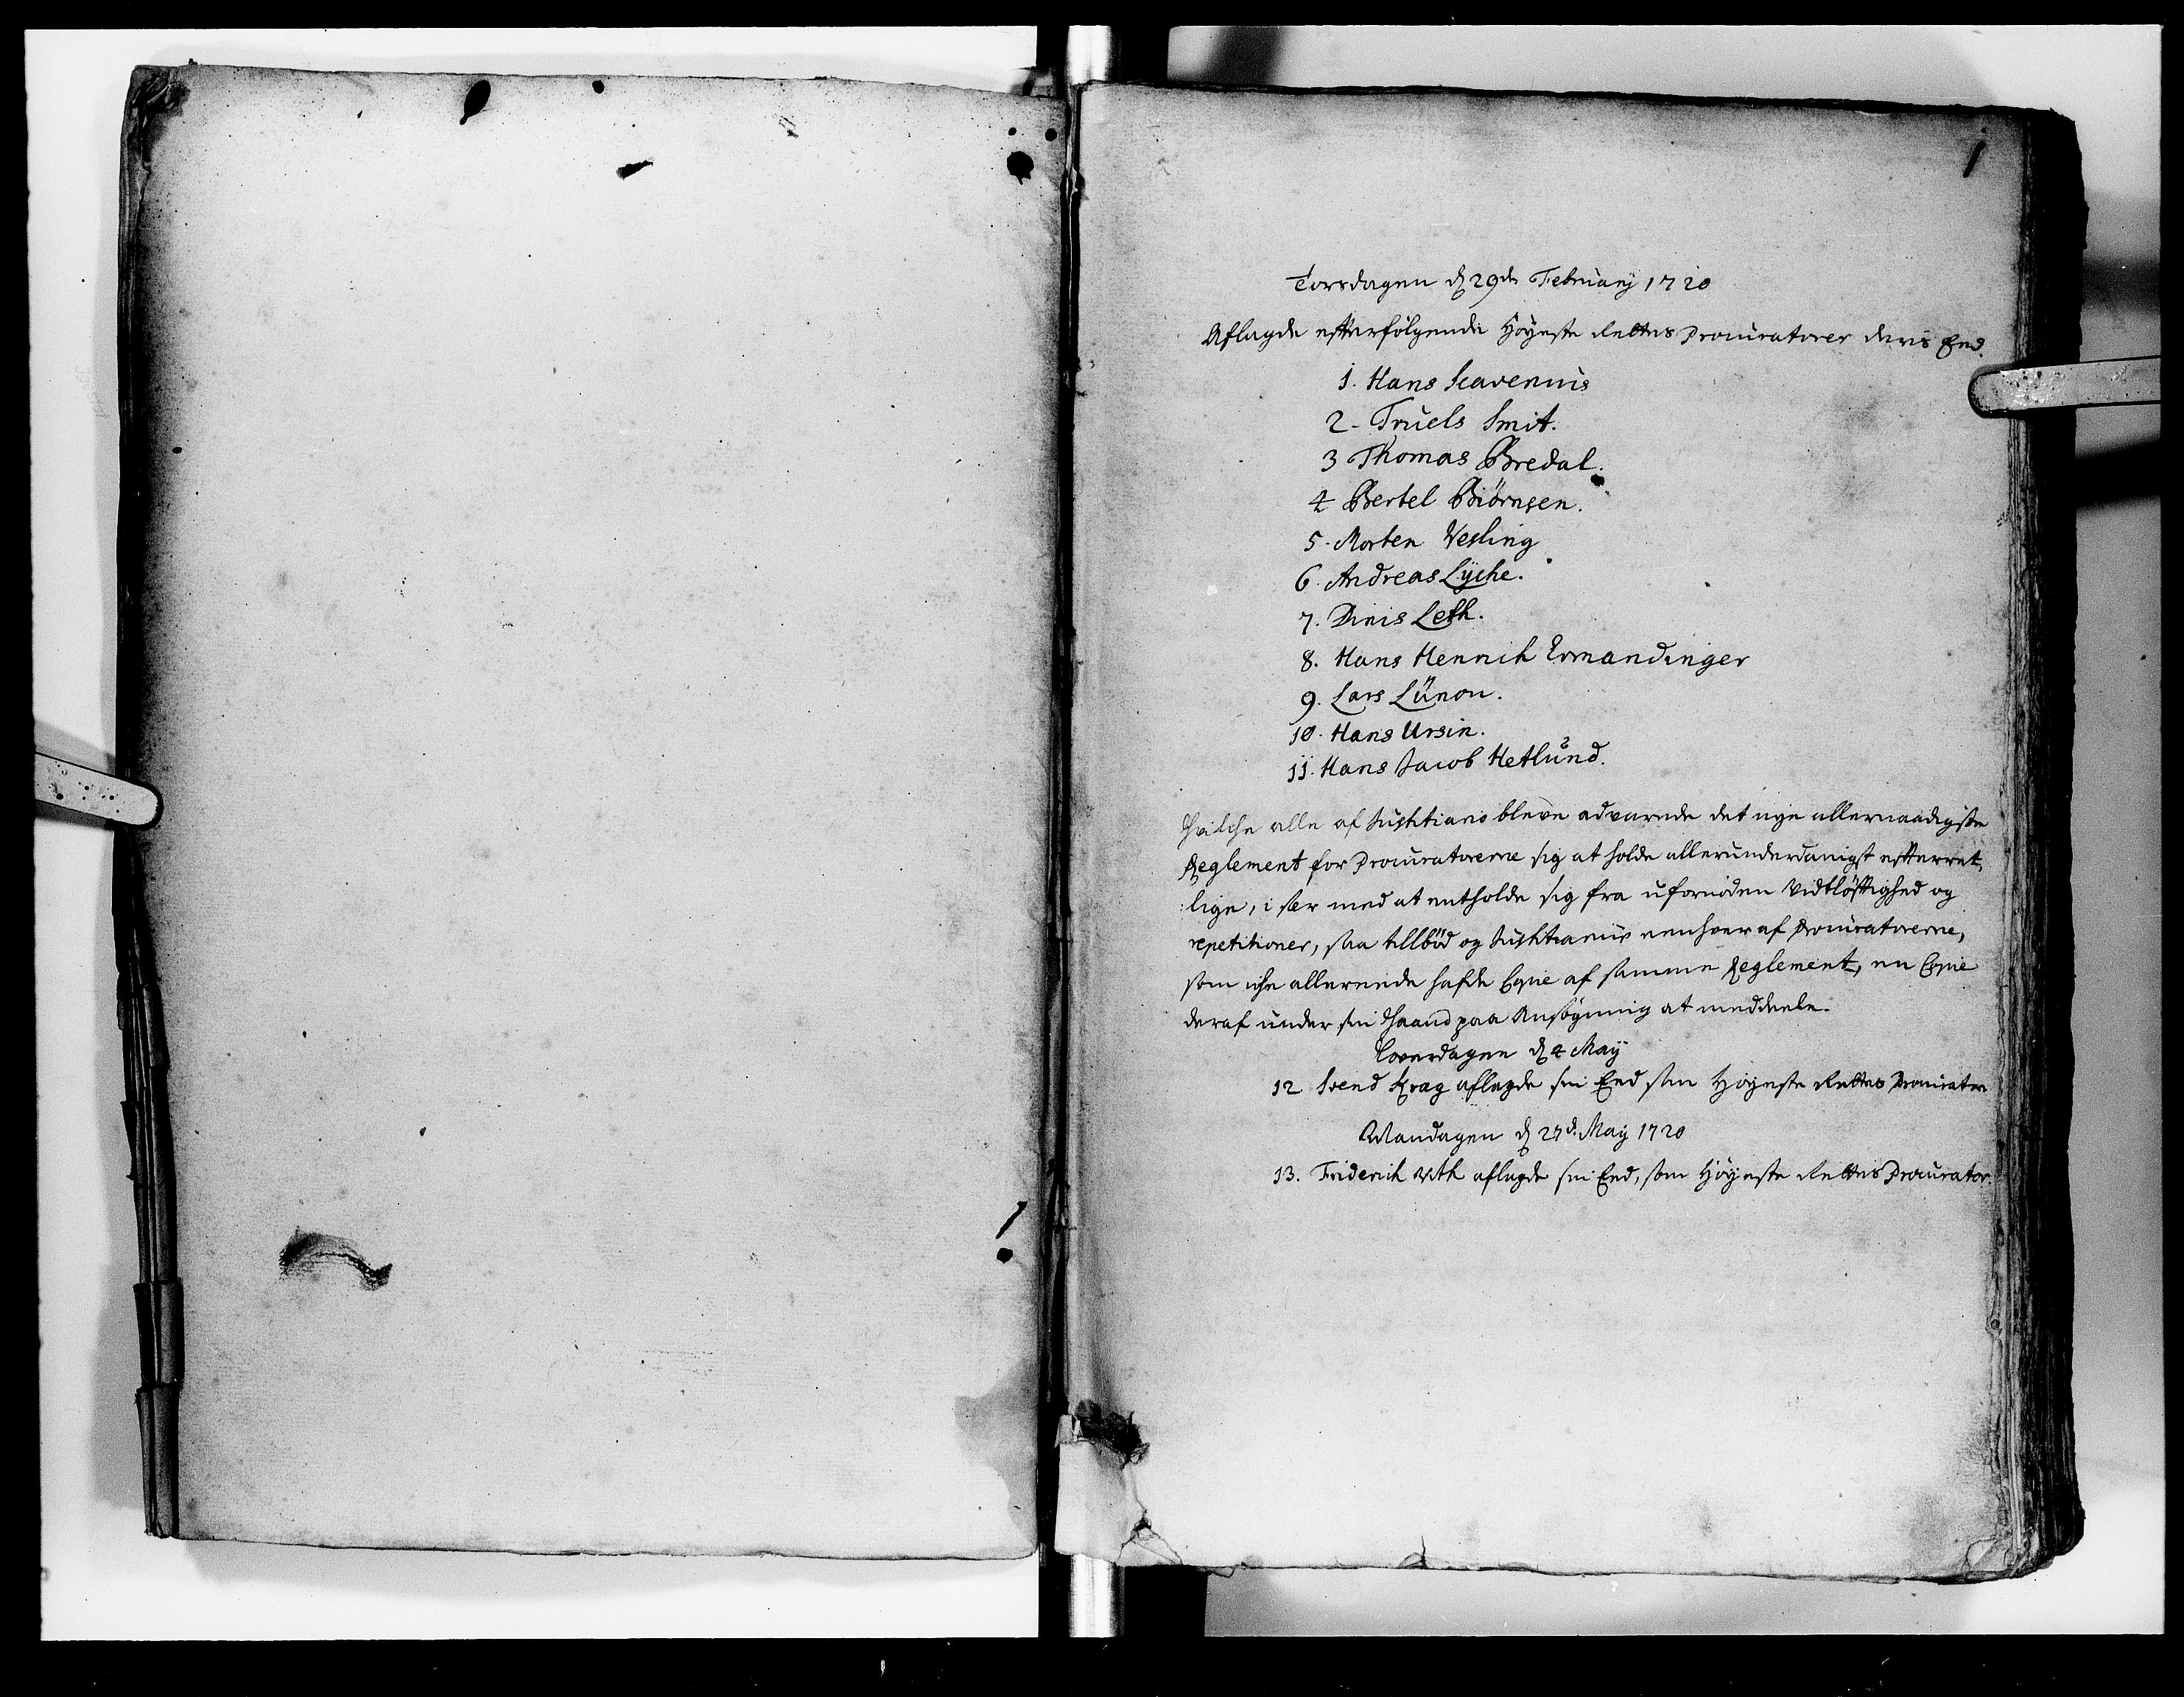 1
Torsdagen d 29de Februarij 1720
Aflagde efterfølgende Høyeste Rettes Procuratorer deris Eed.
1. Hans Scavenius
2. Truels Smit.
3 Thomas Bredal.
4 Bertel Biørnsen.
5. Morten Vesling
6. Andreas Lyche.
7. Dinis Leth.
8. Hans Henrich Ermandinger
9. Lars Lünou.
10. Hans Ursin.
11. Hans Jacob Hetlund.
Hvilche alle af Justitiario bleve advarede det nye allernaadigste
Reglement for Procuratorerne sig at holde allerunderdanigst efterret,
lige, i sær med at entholde sig fra ufornøden Vidtløftighed og
repetitioner, saa tilbød og Justitiarius eenhver af Procuratorerne,
som iche allereede hafde Copie af samme Reglement, en Copie
deraf under sin Haand paa Ansøgning at meddeele.
Løverdagen d 4 May
12 Svend Krag aflagde sin Eed som Høyeste Rettes Procurator
Mandagen d 27d. May 1720
13. Friderich With aflagde sin Eed, som Høyeste Rettes Procurator.
1